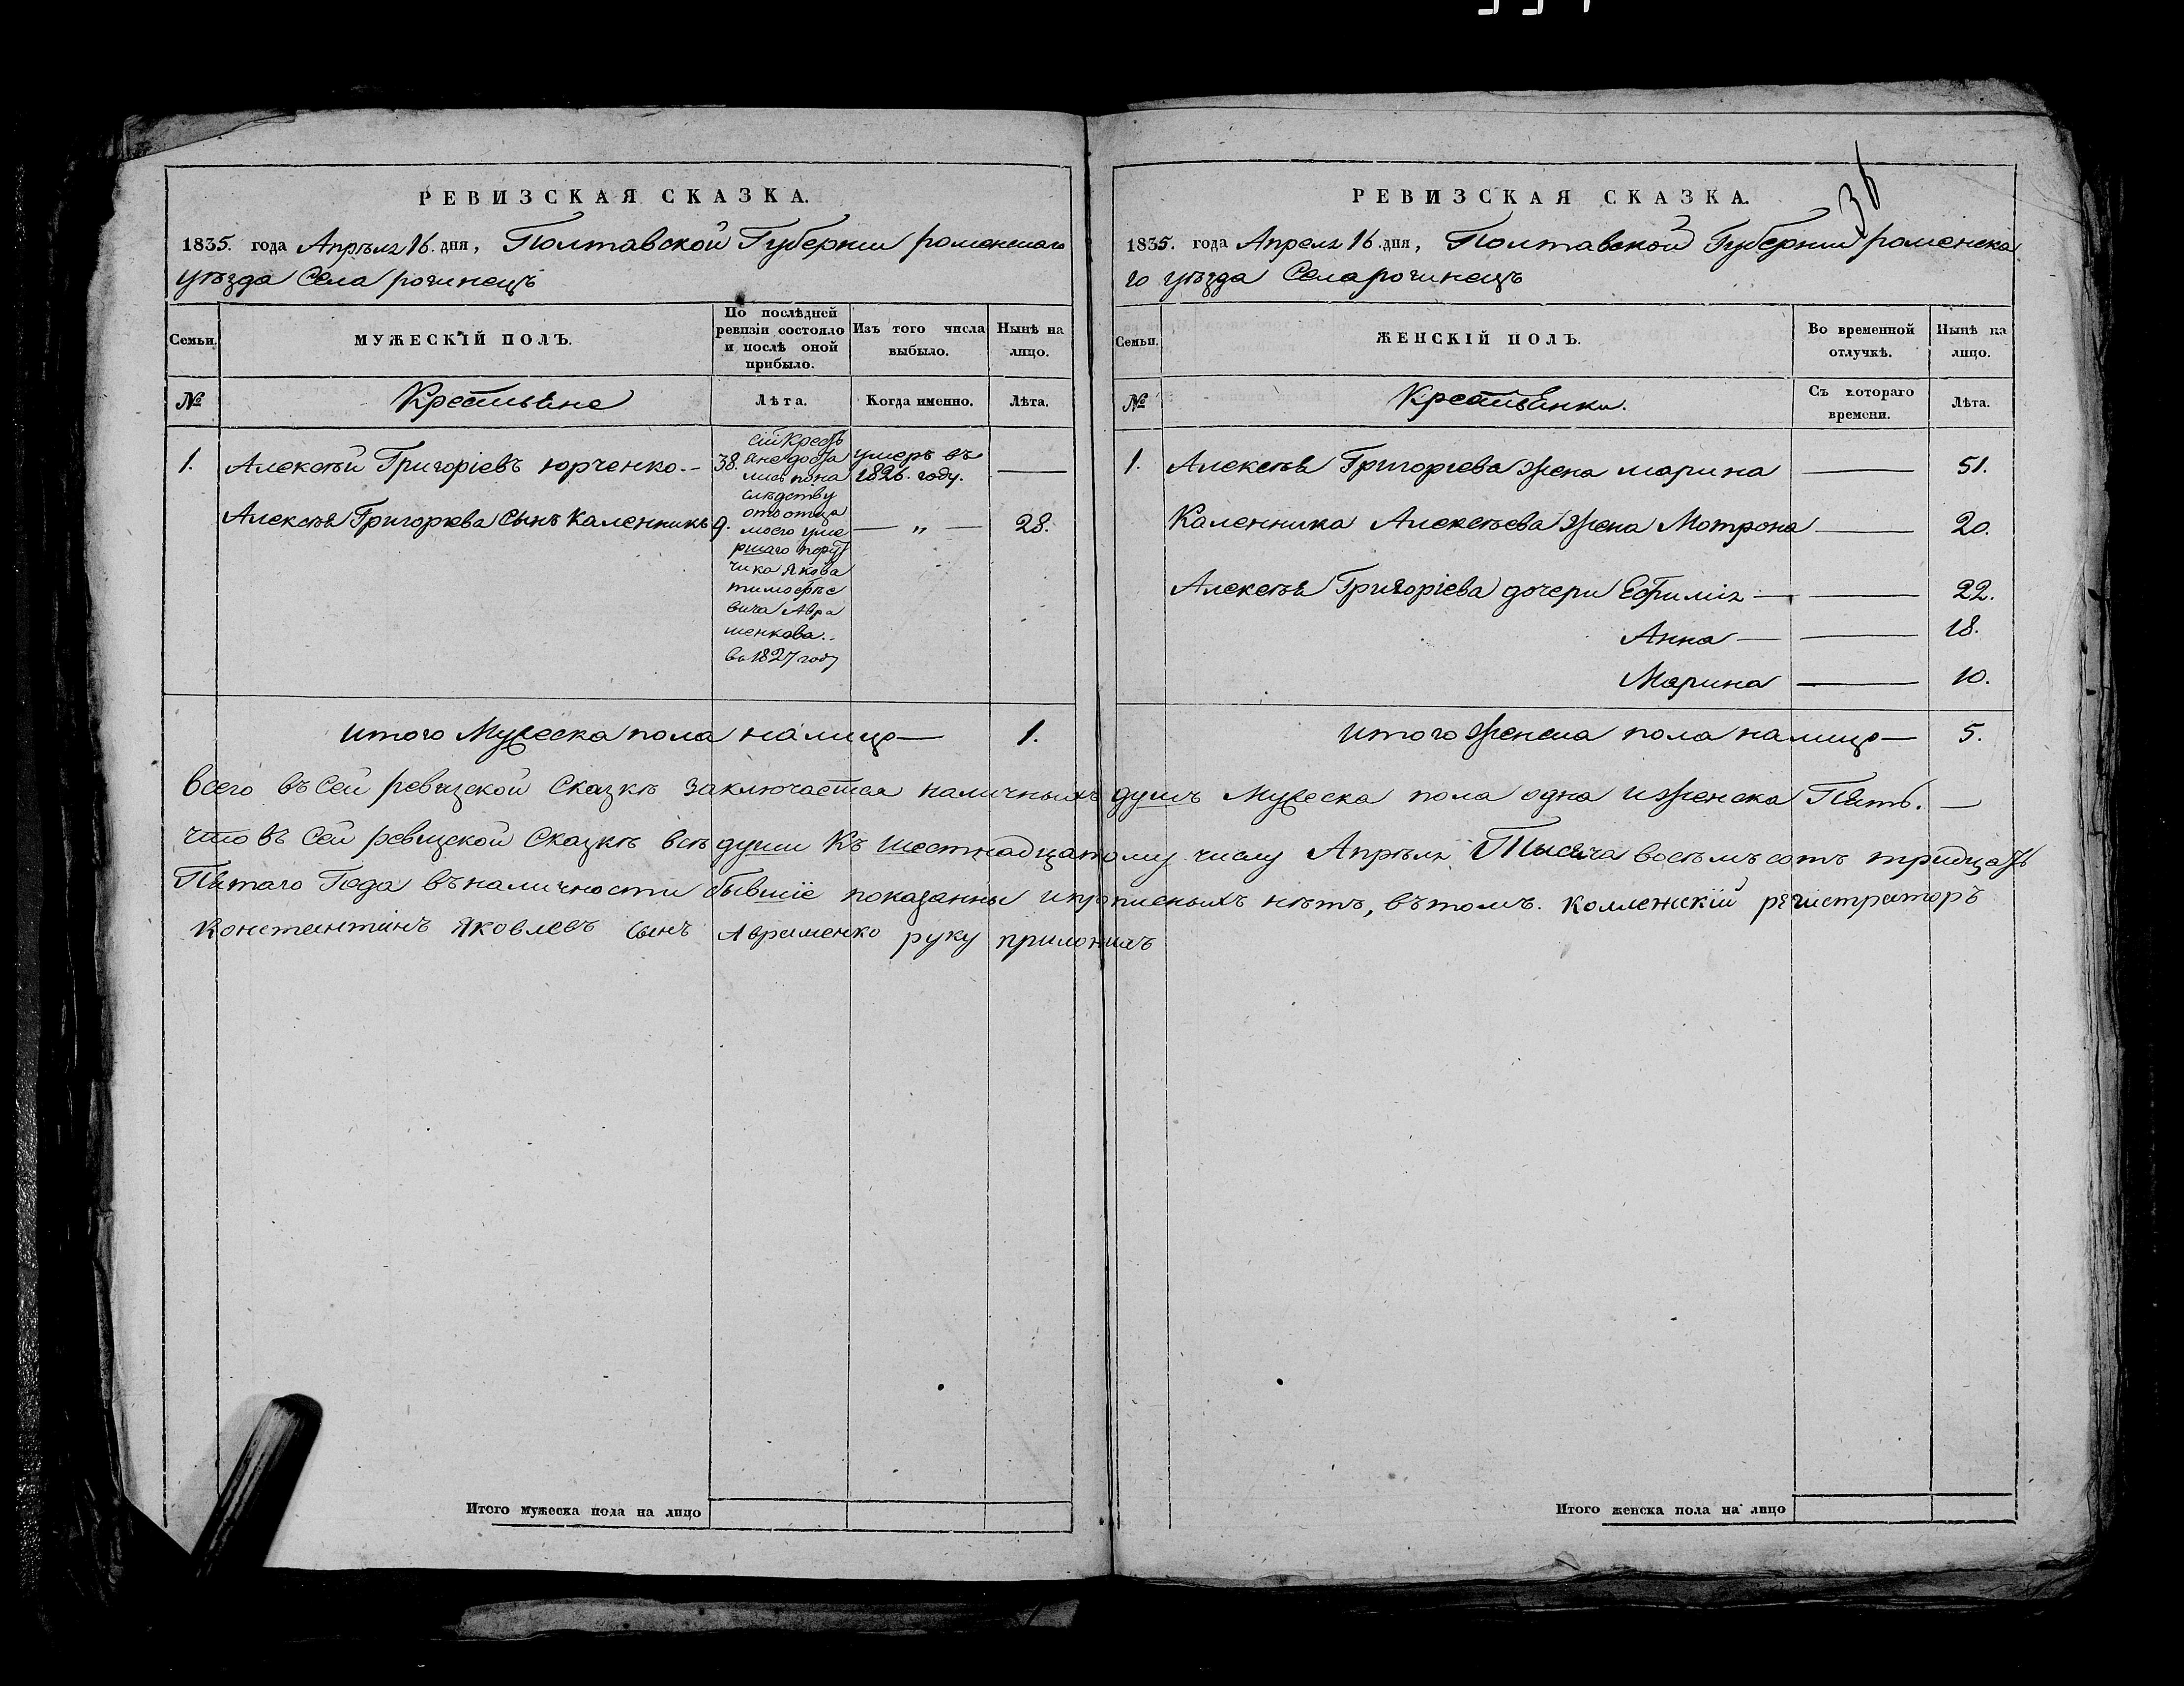 РЕВИЗСКАЯ СКАЗКА.
1835. года Апрѣля 16. дня, Полтавской Губернии роменскаго
уѣзда Села рогинецъ
Семьи.
МУЖЕСКІЙ ПОЛЪ.
По послѣдней ревизіи состояло и послѣ оной прибыло.
Изъ того числа выбыло.
Нынѣ на лицо.
№
Крестьяне
Лѣта.
Когда именно.
Лѣта.
1. Алексѣй Григоріевъ юрченко.- 38. умеръ въ 1826. году. —
Алексѣя Григорьева Сынъ Каленникъ 9. — „ — 28.
сіи Кресть
яне доста
лись по на
слѣдству
отъ отца
моего уме
ршаго пору
чика Якова
тимофѣе
вича Авра
менкова..
въ 1827 году
итого Мужеска пола налицо — 1.
РЕВИЗСКАЯ СКАЗКА.
36
1835. года Апреля 16 дня, Полтавской Губернии роменска
го уѣзда Села рогинецъ
Семьи.
ЖЕНСКІЙ ПОЛЪ.
Во временной отлучкѣ.
Нынѣ на лицо.
№
Крестьянки.
Съ котораго времени.
Лѣта.
1. Алексѣя Григорьева жена марина — 51.
Каленника Алексѣева жена Мотрона — 20.
Алексѣя Григоріева дочери Ефимія — — 22.
Анна — — 18.
Марина — 10.
итого женска пола налицо — 5.
всего въ сей ревизской Сказкѣ заключается наличныхъ душъ Мужеска пола одна и женска Пять. —
что въ Сей ревизской Сказкѣ всѣ души Къ шестнадцатому числу Апрѣля Тысяча восѣмъ сотъ тридцать
Пятаго Года въ наличности бывшіе показанны и прописныхъ нѣтъ, въ томъ. коллежскій регистраторъ
Константинъ Яковлевъ сынъ Авраменко руку приложилъ
Итого мужеска пола на лицо
Итого женска пола на лицо